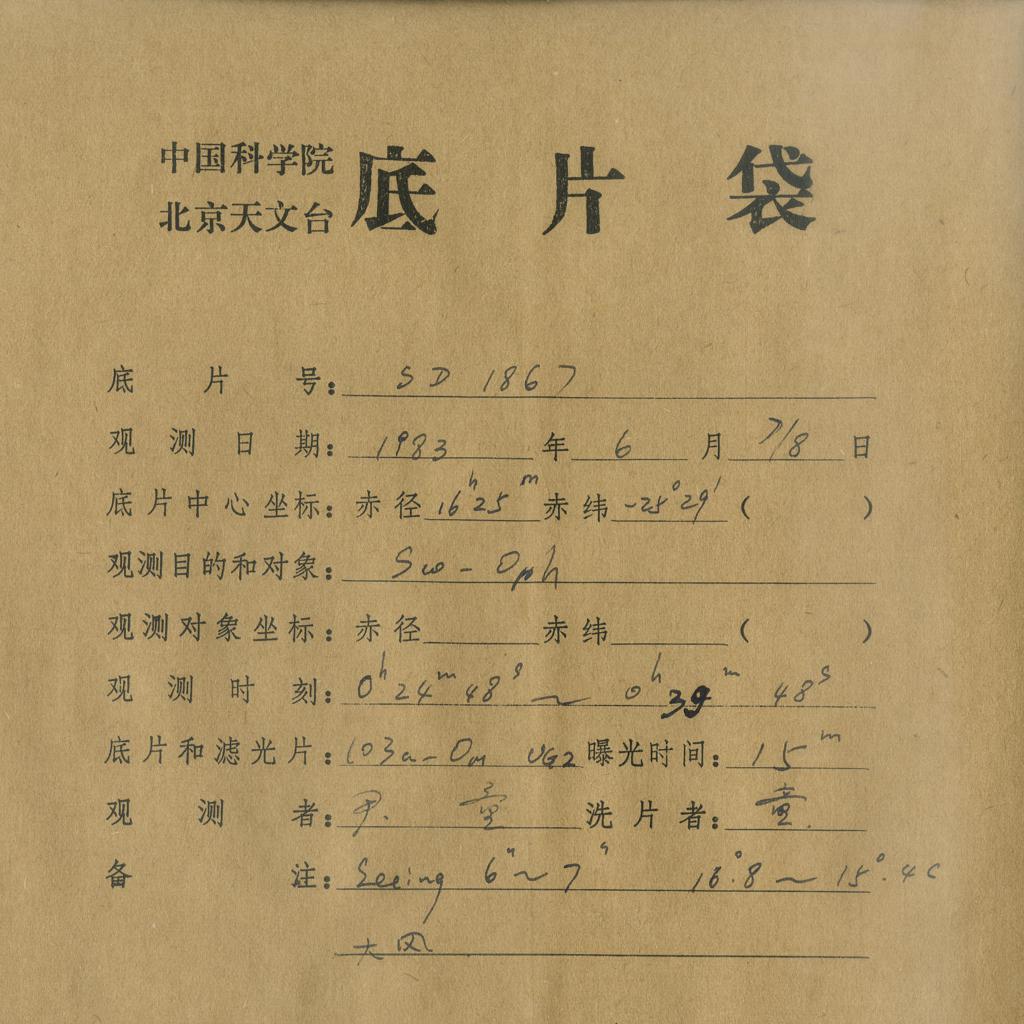 中国科学院
北京天文台
底片袋
底片号: SD 1867
观测日期: 1983年6月7/8日
底片中心坐标: 赤径16h25m赤纬-25°29′( )
观测目的和对象: Sco-Oph
观测对象坐标: 赤径 赤纬 ( )
观测时刻: 0h24m48s~0h39m48s
底片和滤光片: 103a-O UG2 曝光时间: 15m
观测者: 尹. 童 洗片者: 童.
备注: Seeing 6″~7″ 16°.8~15°.4C
大风